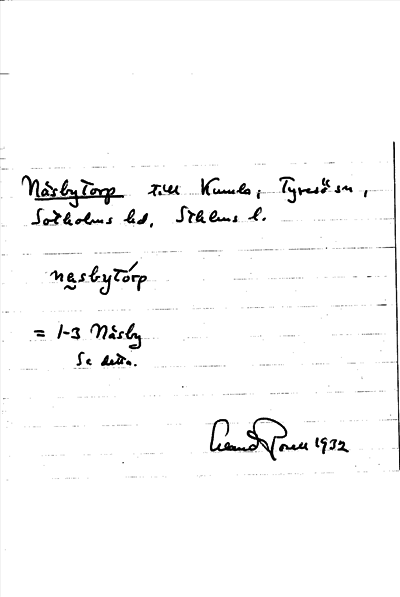 Näsbytorp till Kumla, Tyresö sn,
Sotholms hd, Sthlms l.
näsbytórp
= 1-3 Näsby
Se detta.
1932